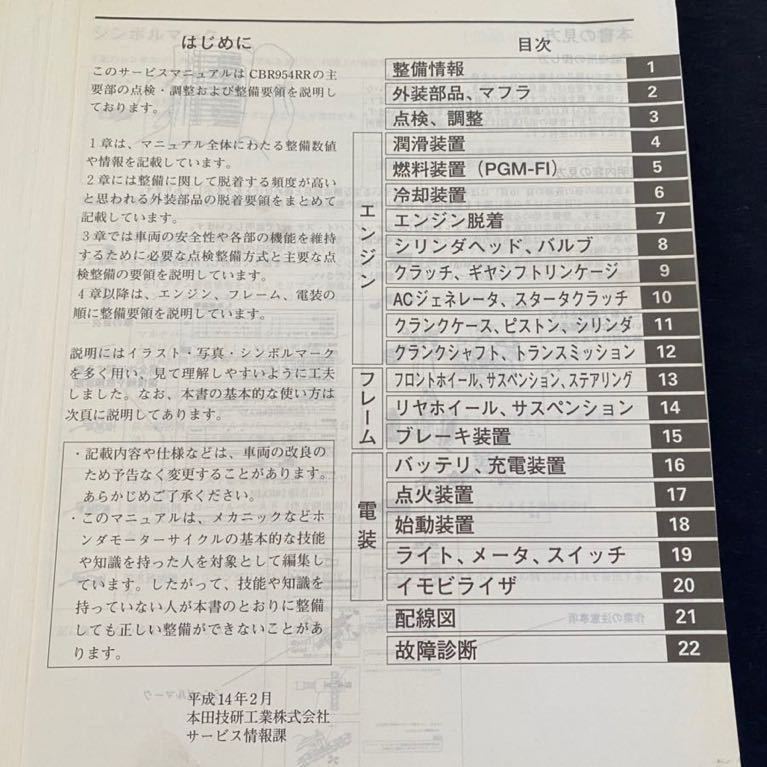 はじめに
このサービスマニュアルは CBR954RRの主
要部の点検・調整および整備要領を説明し
ております。
1章は、マニュアル全体にわたる整備数値
や情報を記載しています。
2章には整備に関して脱着する頻度が高い
と思われる外装部品の脱着要領をまとめて
記載しています。
3章では車両の安全性や各部の機能を維持
するために必要な点検整備方式と主要な点
検整備の要領を説明しています。
4章以降は、エンジン、フレーム、電装の
順に整備要領を説明しています。
説明にはイラスト・写真・シンボルマーク
を多く用い、見て理解しやすいように工夫
しました。なお、本書の基本的な使い方は
次頁に説明してあります。
・記載内容や仕様などは、車両の改良の
ため予告なく変更することがあります。
あらかじめご了承ください。
・このマニュアルは、メカニックなどホ
ンダモーターサイクルの基本的な技能
や知識を持った人を対象として編集し
ています。したがって、技能や知識を
持っていない人が本書のとおりに整備
しても正しい整備ができないことがあ
ります。
平成14年2月
本田技研工業株式会社
サービス情報課
目次
整備情報 1
外装部品、マフラ 2
点検、調整 3
エンジン
潤滑装置 4
燃料装置(PGM-FI) 5
冷却装置 6
エンジン脱着 7
シリンダヘッド、バルブ 8
クラッチ、ギヤシフトリンケージ 9
ACジェネレータ、スタータクラッチ 10
クランクケース、ピストン、シリンダ 11
クランクシャフト、トランスミッション 12
フレーム
フロントホイール、サスペンション、ステアリング 13
リヤホイール、サスペンション 14
ブレーキ装置 15
電装
バッテリ、充電装置 16
点火装置 17
始動装置 18
ライト、メータ、スイッチ 19
イモビライザ 20
配線図 21
故障診断 22